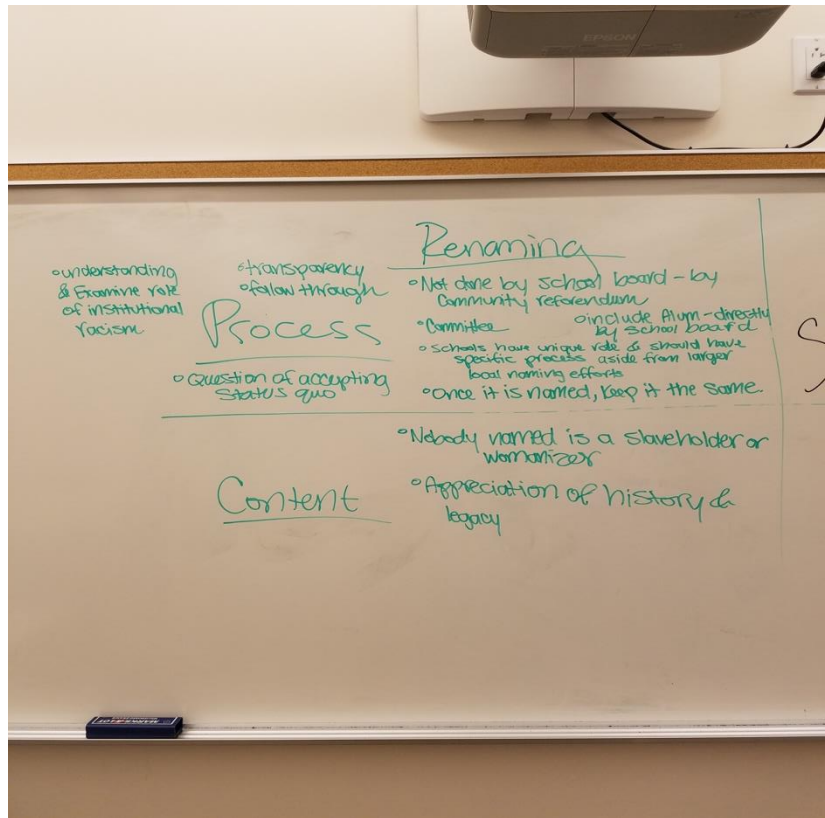 EPSON
Renaming
◦understanding
& Examine role
of institutional
racism
◦transparency
◦follow through
Process
◦Question of accepting
Status quo
◦Not done by school board - by
Community referendum
◦Committee
◦include Alum-directly
by school board
◦Schools have unique role & should have
specific process aside from larger
local naming efforts
◦Once it is named, keep it the same.
Content
◦Nobody named is a slaveholder or
womanizer
◦Appreciation of history &
legacy